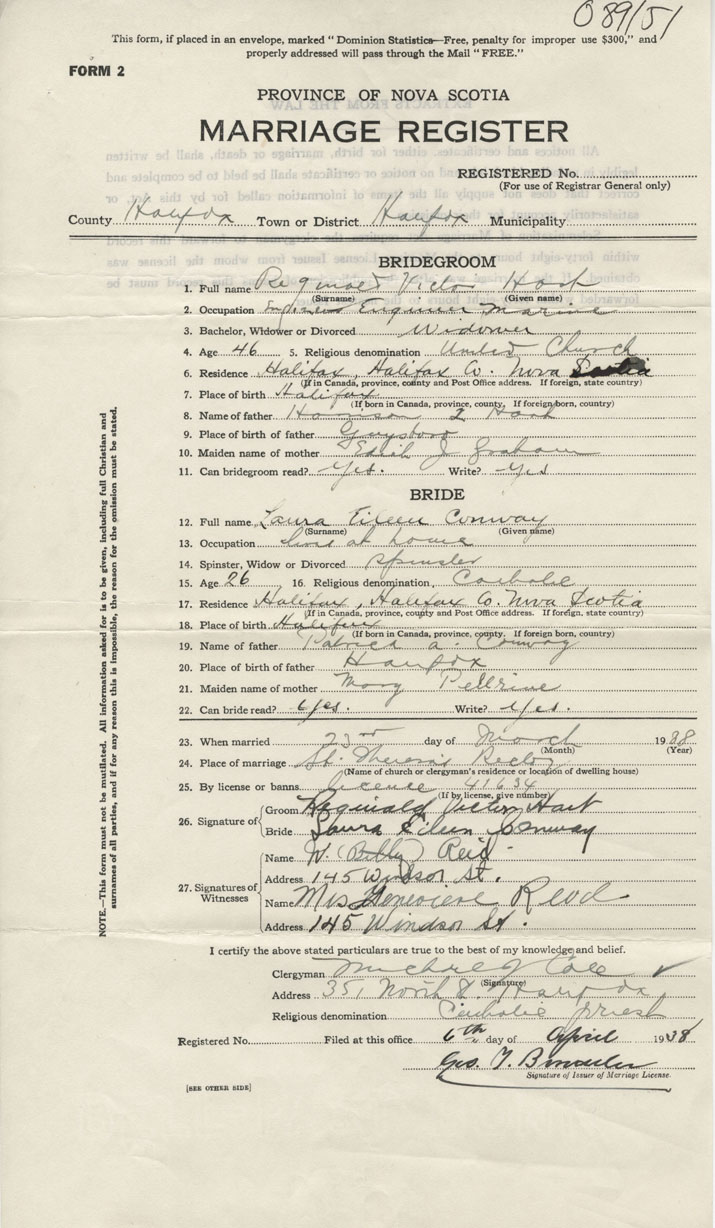 089151
This form, if placed in an envelope, marked "Dominion Statistics—Free, penalty for improper use $300," and
properly addressed will pass through the Mail "FREE."
FORM 2
PROVINCE OF NOVA SCOTIA
MARRIAGE REGISTER
REGISTERED No.
(For use of Registrar General only)
County Halifax Town or District Halifax Municipality
BRIDEGROOM
1. Full name Reginald Victor Hart
(Surname) (Given name)
2. Occupation Engineer Marine
3. Bachelor, Widower or Divorced Widower
4. Age 46 5. Religious denomination United Church
6. Residence Halifax, Halifax Co. Nova Scotia
(If in Canada, province, county and Post Office address. If foreign, state country)
7. Place of birth Halifax
(If born in Canada, province, county. If foreign born, country)
8. Name of father Harrison Hart
9. Place of birth of father Guysboro
10. Maiden name of mother Edith J Graham
11. Can bridegroom read? Yes. Write? Yes
BRIDE
12. Full name Laura Eileen Conway
(Surname) (Given name)
13. Occupation live at home
14. Spinster, Widow or Divorced Spinster
15. Age 26 16. Religious denomination Catholic
17. Residence Halifax, Halifax Co. Nova Scotia
(If in Canada, province, county and Post Office address. If foreign, state country)
18. Place of birth Halifax
(If born in Canada, province, county. If foreign born, country)
19. Name of father Patrick A. Conway
20. Place of birth of father Halifax
21. Maiden name of mother Mary Pellrine
22. Can bride read? Yes. Write? Yes.
23. When married 23rd day of March 1938
(Month) (Year)
24. Place of marriage St. Theresa's Rectory
(Name of church or clergyman's residence or location of dwelling house)
25. By license or banns license 41634
(If by license, give number)
26. Signature of
Groom Reginald Victor Hart
Bride Laura Eileen Conway
27. Signatures of Witnesses
Name W. (Billy) Reid
Address 145 Windsor St.
Name Mrs Genevieve Reid
Address 145 Windsor St.
I certify the above stated particulars are true to the best of my knowledge and belief.
Clergyman Michael J Cole
(Signature)
Address 351 North St. Halifax
Religious denomination Catholic Priest
Registered No. Filed at this office 6th day of April 1938
Geo. T.
Signature of Issuer of Marriage License.
[SEE OTHER SIDE]
NOTE.—This form must not be mutilated. All information asked for is to be given, including full Christian and
surnames of all parties, and if for any reason this is impossible, the reason for the omission must be stated.